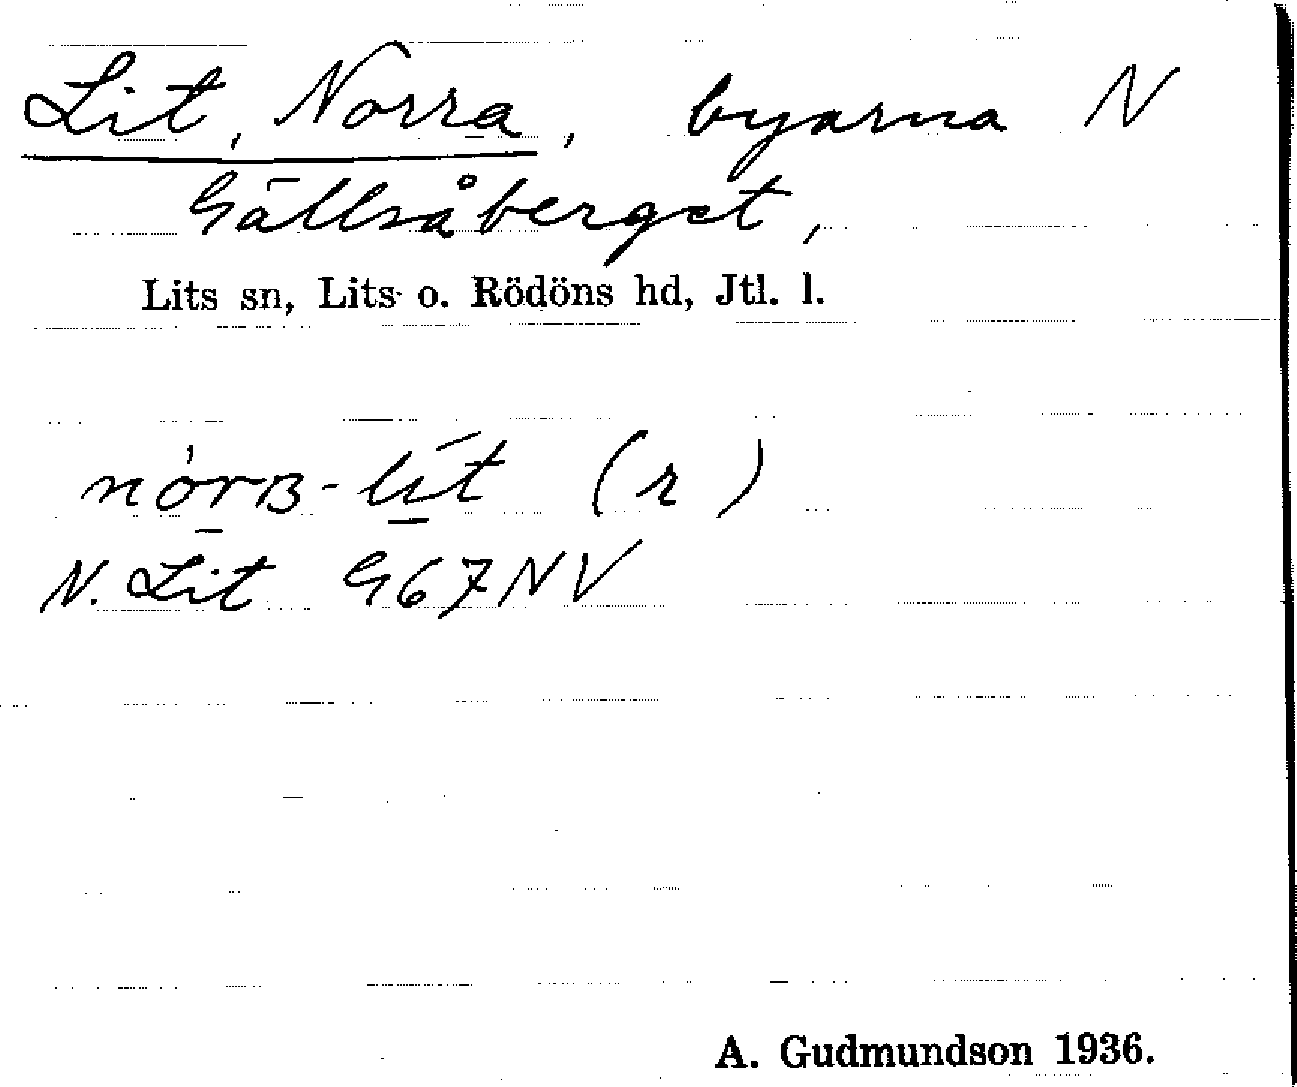 Lit, Norra, byarna N
Gällsåberget,
Lits sn, Lits o. Rödöns hd, Jtl. l.
(r)
N. Lit G67NV
A. Gudmundson 1936.